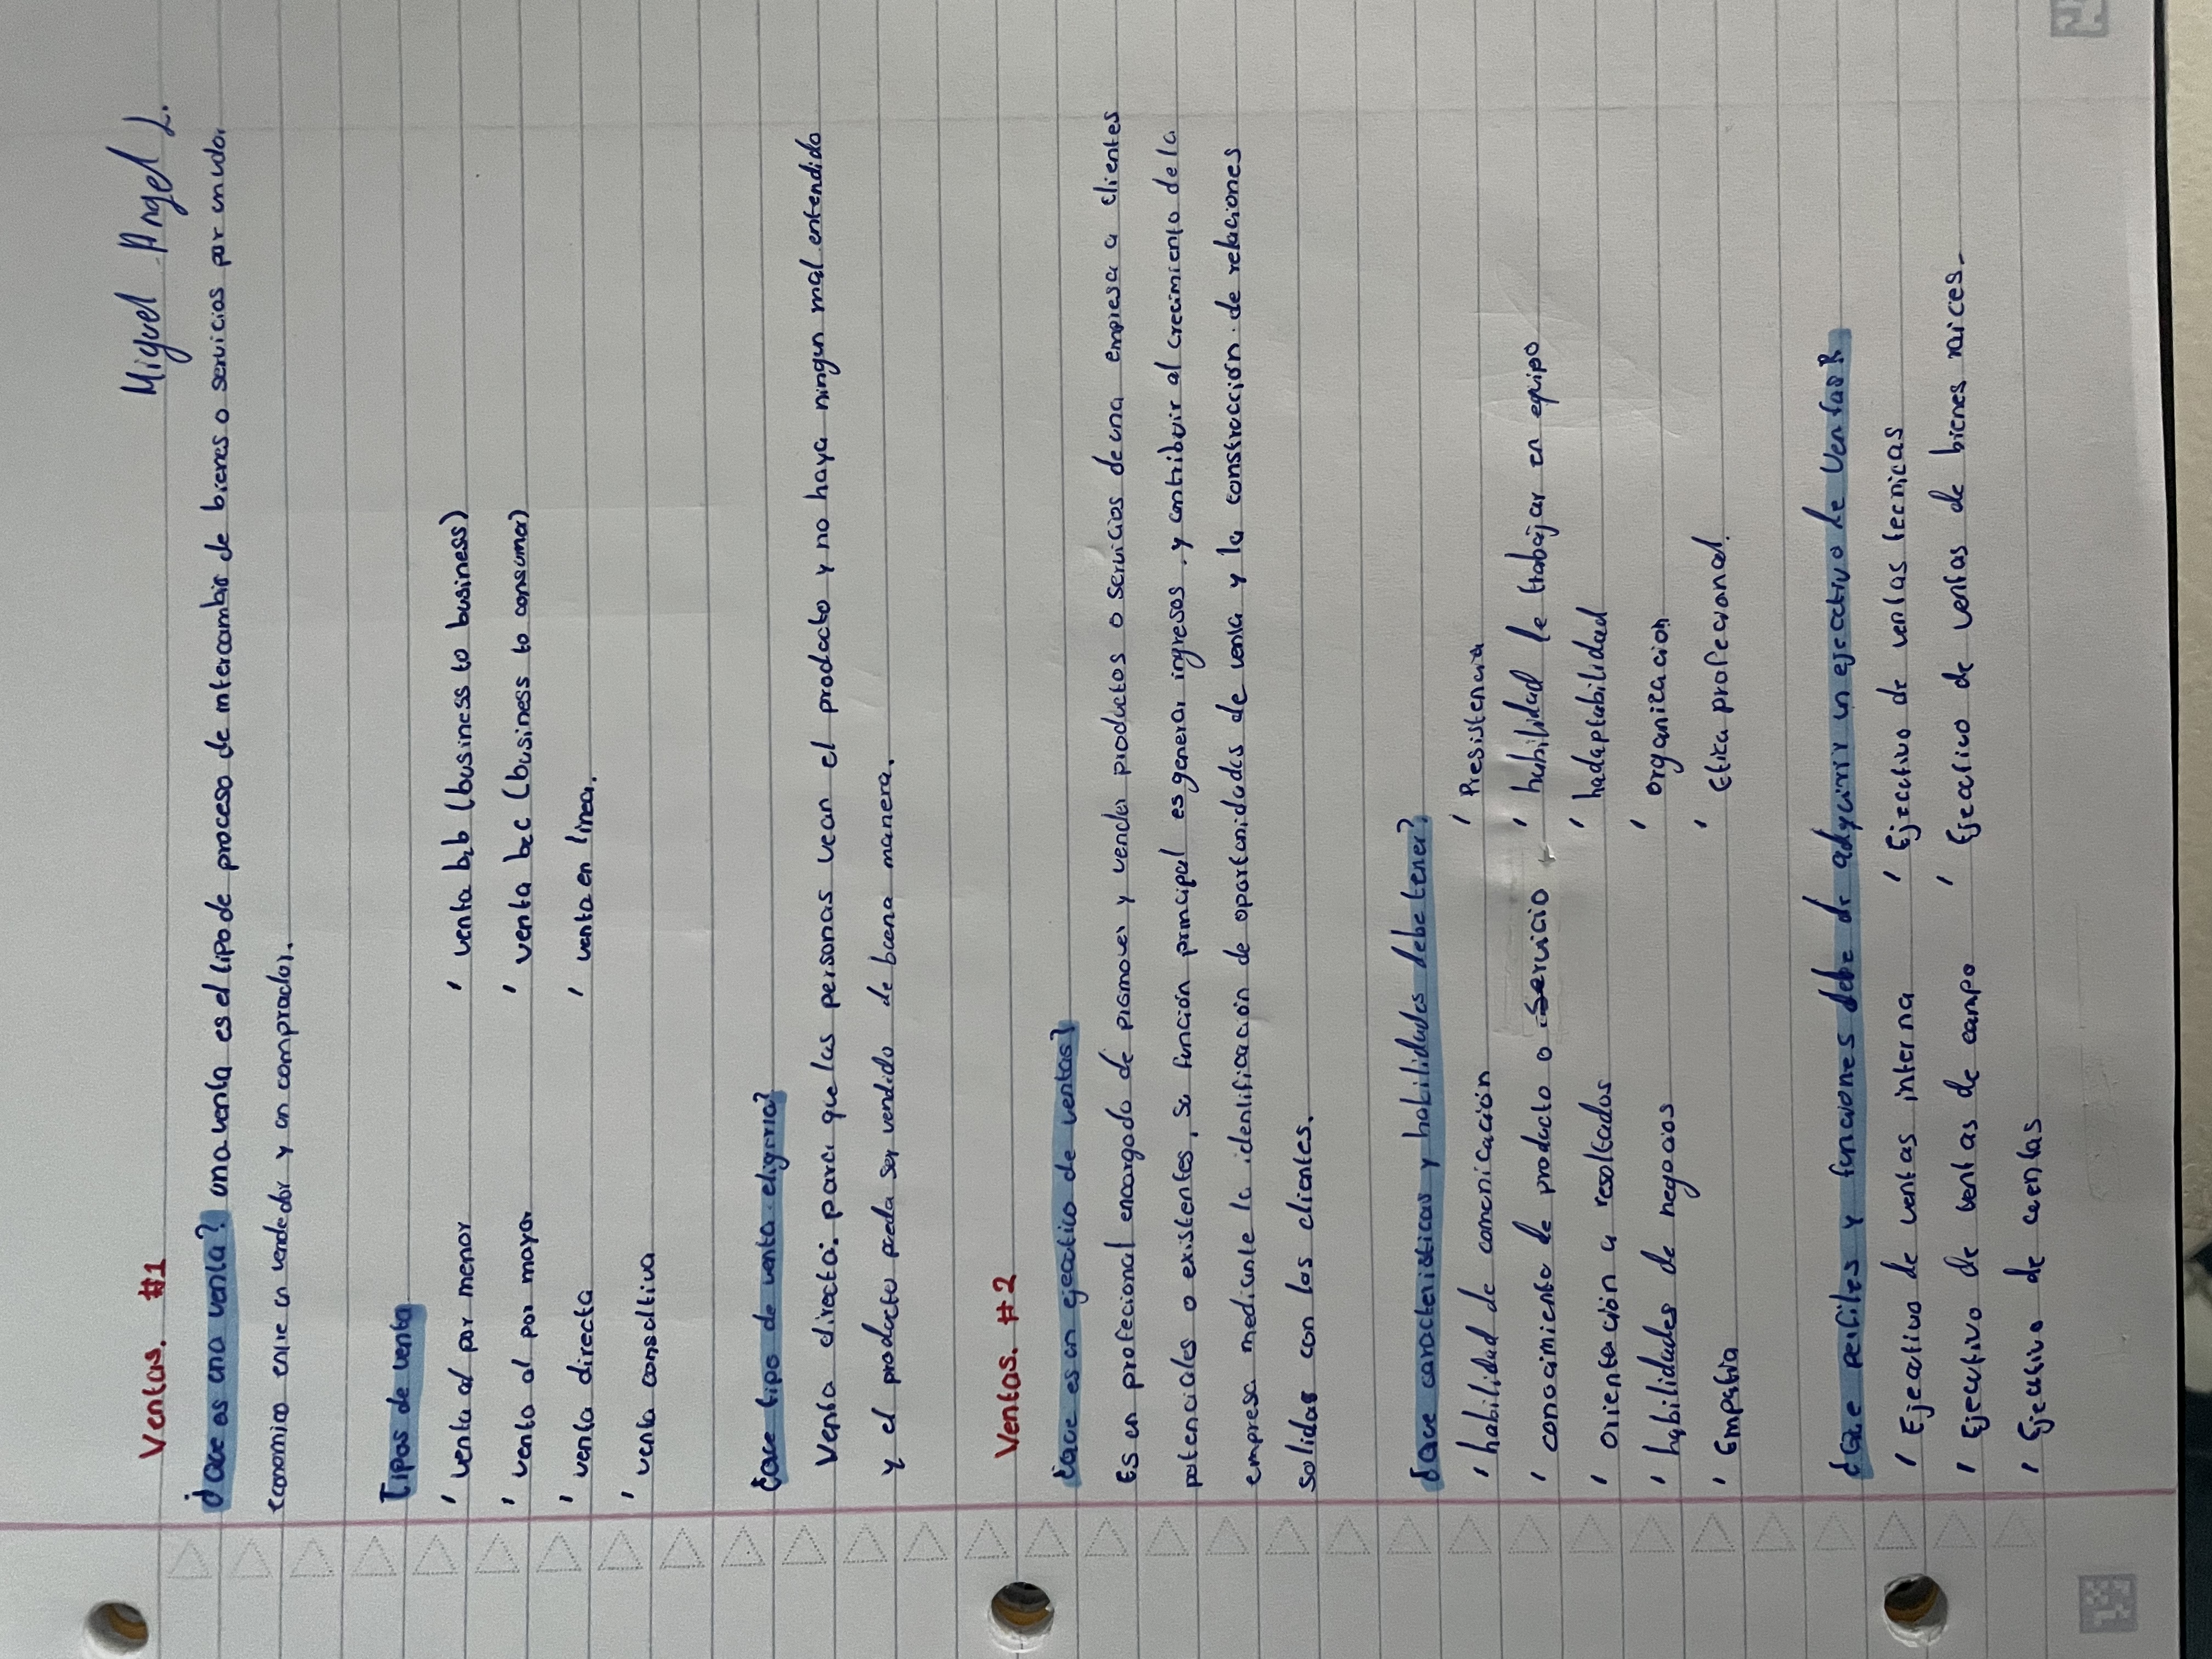 Miguel Angel L.
Ventas. #1
¿Que es una venta? una venta es el tipo de proceso de intercambio de bienes o servicios por un valor
economico entre un vendedor y un comprador.
Tipos de venta
' venta al por menor ' venta b2b (business to business)
' venta al por mayor ' venta b2c (business to consumer)
' venta directa ' venta en linea.
' venta consultiva
¿que tipo de venta eligiria?
Venta directa: para que las personas vean el producto y no haya ningun mal entendido
y el producto pueda ser vendido de buena manera.
Ventas. #2
¿Que es un ejecutivo de ventas?
Es un profecional encargado de promover y vender productos o servicios de una empresa a clientes
potenciales o existentes, su función principal es generar ingresos, y contribuir al crecimiento de la
empresa mediante la identificación de oportunidades de venta y la construcción de relaciones
solidas con los clientes.
¿Que caracteristicas y habilidades debe tener?
' habilidad de comunicación ' Presistencia
' conocimiento de producto o servicio ' habilidad de trabajar en equipo
' orientación a resultados ' hadaptabilidad
' habilidades de negocios ' organizacion
' Empatia ' Etica profecional.
¿Que perfiles y funciones debe de adquirir un ejecutivo de Ventas?
' Ejecutivo de ventas interna ' Ejecutivo de ventas tecnicas
' Ejecutivo de ventas de campo ' Ejecutivo de ventas de bienes raices.
' Ejecutivo de cuentas